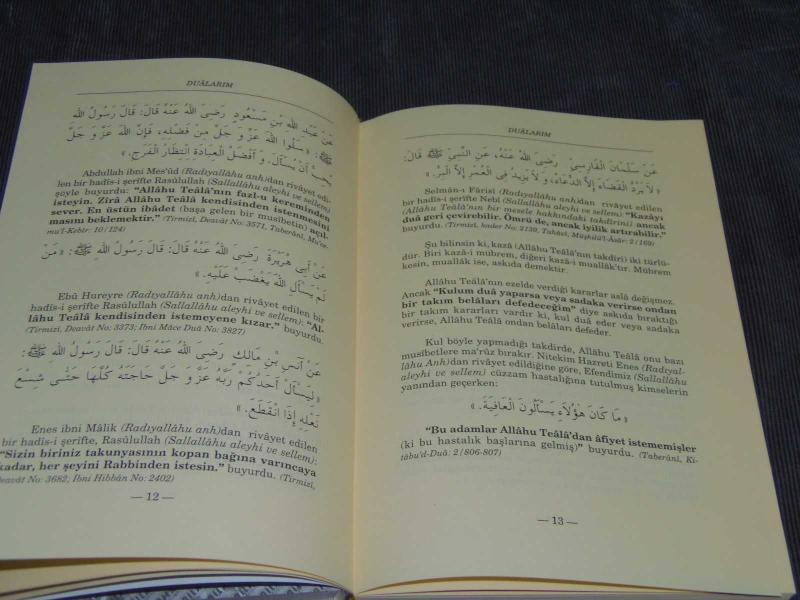 DUÂLARIM
عَنْ عَبْدِ اللهِ بْنِ مَسْعُودٍ رَضِىَ اللهُ عَنْهُ قَالَ: قَالَ رَسُولُ اللهِ
ﷺ: « سَلُوا اللهَ عَزَّ وَ جَلَّ مِنْ فَضْلِهِ، فَإِنَّ اللهَ عَزَّ وَ جَلَّ
يُحِبُّ أَنْ يُسْأَلَ. وَ أَفْضَلُ الْعِبَادَةِ اِنْتِظَارُ الْفَرَجِ. »
Abdullah ibni Mes'ûd (Radıyallâhu anh)dan rivâyet edi-
len bir hadîs-i şerîfte Rasûlullah (Sallallâhu aleyhi ve sellem)
şöyle buyurdu: "Allâhu Teâlâ'nın fazl-u kereminden
isteyin. Zîrâ Allâhu Teâlâ kendisinden istenmesini
sever. En üstün ibâdet (başa gelen bir musîbetin) açıl-
masını beklemektir." (Tirmizî, Deavât No: 3571, Taberânî, Mu'ce-
mu'l-Kebîr: 10/124)
عَنْ أَبِى هُرَيْرَةَ رَضِىَ اللهُ عَنْهُ قَالَ: قَالَ رَسُولُ اللهِ ﷺ: « مَنْ
لَمْ يَسْأَلِ اللهَ يَغْضَبْ عَلَيْهِ. »
Ebû Hureyre (Radıyallâhu anh)dan rivâyet edilen bir
hadîs-i şerîfte Rasûlullah (Sallallâhu aleyhi ve sellem): "Al-
lâhu Teâlâ kendisinden istemeyene kızar." buyurdu.
(Tirmizî, Deavât No: 3373; İbni Mâce Duâ No: 3827)
عَنْ أَنَسِ بْنِ مَالِكٍ رَضِىَ اللهُ عَنْهُ قَالَ: قَالَ رَسُولُ اللهِ ﷺ:
« لِيَسْأَلْ أَحَدُكُمْ رَبَّهُ عَزَّ وَ جَلَّ حَاجَتَهُ كُلَّهَا حَتَّى شِسْعَ
نَعْلِهِ إِذَا انْقَطَعَ. »
Enes ibni Mâlik (Radıyallâhu anh)dan rivâyet edilen
bir hadîs-i şerîfte, Rasûlullah (Sallallâhu aleyhi ve sellem):
"Sizin biriniz takunyasının kopan bağına varıncaya
kadar, her şeyini Rabbinden istesin." buyurdu. (Tirmizî,
Deavât No: 3682, İbni Hibbân No: 2402)
— 12 —
DUÂLARIM
عَنْ سَلْمَانَ الْفَارِسِى رَضِىَ اللهُ عَنْهُ، عَنِ النَّبِىِّ ﷺ قَالَ:
« لاَ يَرُدُّ الْقَضَاءَ إِلاَّ الدُّعَاءُ، وَ لاَ يَزِيدُ فِى الْعُمْرِ إِلاَّ الْبِرُّ. »
Selmân-ı Fârisî (Radıyallâhu anh)dan rivâyet edilen
bir hadîs-i şerîfte Nebî (Sallallâhu aleyhi ve sellem): "Kazâyı
(Allâhu Teâlâ'nın bir mesele hakkındaki takdîrini) ancak
duâ geri çevirebilir. Ömrü de, ancak iyilik artırabilir."
buyurdu. (Tirmizî, kader No: 2139, Tahâvî, Müşkilü'l-Âsâr: 2/169)
Şu bilinsin ki, kazâ (Allâhu Teâlâ'nın takdîri) iki türlü-
dür. Biri kazâ-i mübrem, diğeri kazâ-i muallâk'tır. Mübrem
kesin, muallâk ise, askıda demektir.
Allâhu Teâlâ'nın ezelde verdiği kararlar aslâ değişmez.
Ancak "Kulum duâ yaparsa veya sadaka verirse ondan
bir takım belâları defedeceğim" diye askıda bıraktığı
bir takım kararları vardır ki, kul duâ eder veya sadaka
verirse, Allâhu Teâlâ ondan belâları defeder.
Kul böyle yapmadığı takdirde, Allâhu Teâlâ onu bazı
musîbetlere ma'rûz bırakır. Nitekim Hazreti Enes (Radıyal-
lâhu Anh)dan rivâyet edildiğine göre, Efendimiz (Sallallâhu
aleyhi ve sellem) cüzzam hastalığına tutulmuş kimselerin
yanından geçerken:
« مَا كَانَ هٰؤُلاَءِ يَسْأَلُونَ الْعَافِيَةَ. »
"Bu adamlar Allâhu Teâlâ'dan âfiyet istememişler
(ki bu hastalık başlarına gelmiş)" buyurdu. (Taberânî, Ki-
tâbu'd-Duâ: 2/806-807)
— 13 —